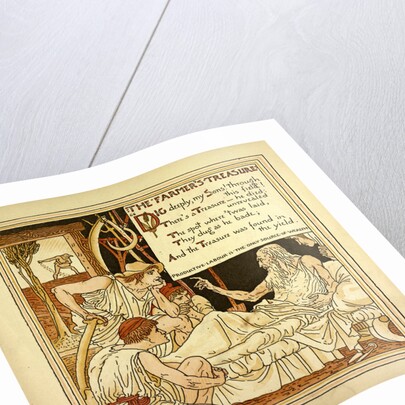 THE FARMER'S TREASURE
DIG deeply, my Sons! through
this field!
There's a Treasure — he died:
unrevealed
The spot where 'twas laid,
They dug as he bade;
And the Treasure was found in
the yield.
PRODUCTIVE LABOUR IS THE ONLY SOURCE OF WEALTH